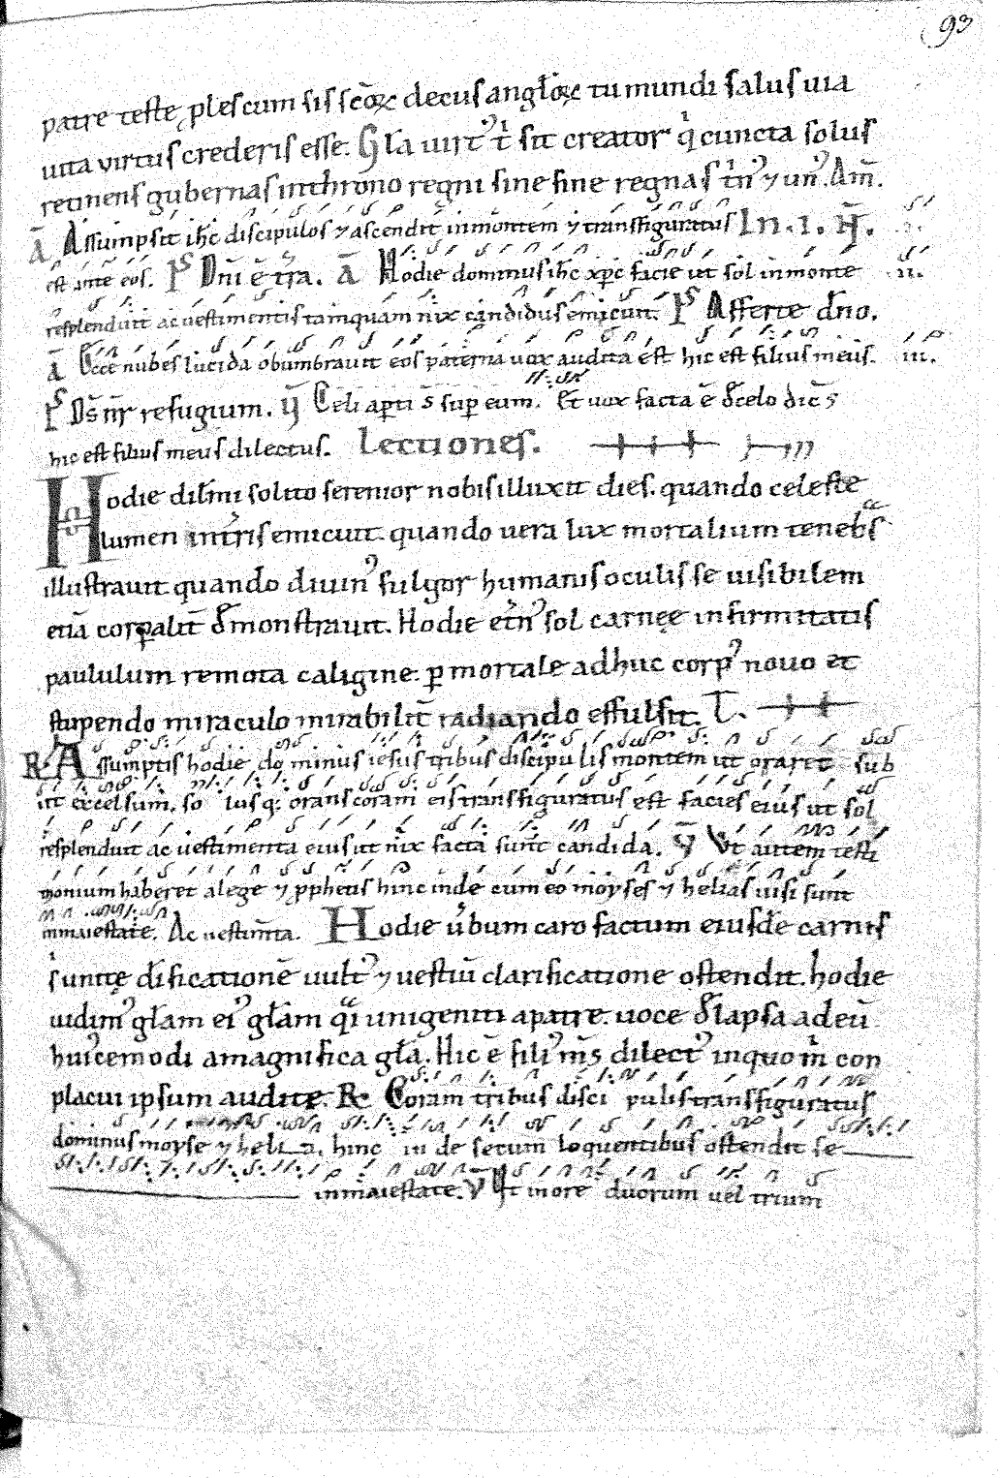 93
patre teste plescum sis sc̄oꝝ decus angl̄oꝝ tu mundi salus uia
uita virtus crederis esse. Gl̄a uirtꝰ t' sit creator qͥ cuncta solus
retinens gubernas inthrono regni sine fine regnas t'nꝰ ⁊ unꝰ. Am̄.
ā Assumpsit ih̄c discipulos ⁊ ascendit inmontem ⁊ transfiguratus In .i. N̄.
est ante eos. ps Dn̄i ē t'ra. ā Hodie dominus ih̄c xp̄c facie ut sol inmonte .ii.
resplenduit ac uestimentis tamquam nix candidus emicuit. ps Afferte dn̄o.
ā Ecce nubes lucida obumbrauit eos paterna uox audita est hic est filius meus. .iii.
ps Ds̄ nr̄ refugium. ℣ Celi aꝑti s̄ suꝑ eum. Et uox facta ē d̄celo dic̄s
hic est filius meus dilectus. Lectiones.
Hodie dil̄mi solito serenior nobis illuxit dies. quando celeste
lumen int'ris emicuit. quando uera lux mortalium teneb̄s
illustrauit quando diuinꝰ fulgor humanis oculis se uisibilem
etiā corꝑalit̄ d̄monstrauit. Hodie et'nꝰ sol carnęe infirmitatis
paululum remota caligine. ꝑ mortale adhuc corpꝰ nouo et
stupendo miraculo mirabilit̄ radiando effulsit. T.
℟ Assumptis hodie do minus iesus tribus discipu lis montem ut oraret sub
iit excelsum. so lus q: orans coram eis transfiguratus est facies eius ut sol
resplenduit ac uestimenta eius ut nix facta sunt candida. ℣ Vt autem testi
monium haberet a lege ⁊ ꝓphetis hinc inde cum eo moyses ⁊ helias uisi sunt
inmaiestate. Ac uestim̄ta. Hodie u'bum caro factum eiusdē carnis
sumtę d'ificationē uult' ⁊ uestiū clarificatione ostendit. hodie
uidimꝰ gl̄am eiꝰ gl̄am qͣi unigeniti apatre. uoce d̄lapsa adeū
huiꝰcemodi amagnifica gl̄a. Hic ē filiꝰ m̄s dilectꝰ inquo m̄ con
placui ipsum audite. ℟ Coram tribus disci pulis transfiguratus
dominus moyse ⁊ heli a. hinc in de secum loquentibus ostendit se
inmaiestate. ℣ Vt inore duorum uel trium